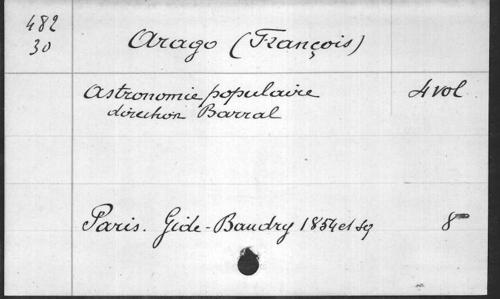 482
30
Arago (François)
Astronomie populaire 4 vol
direction Barral
Paris. Gide-Baudry 1854 et sq 8°